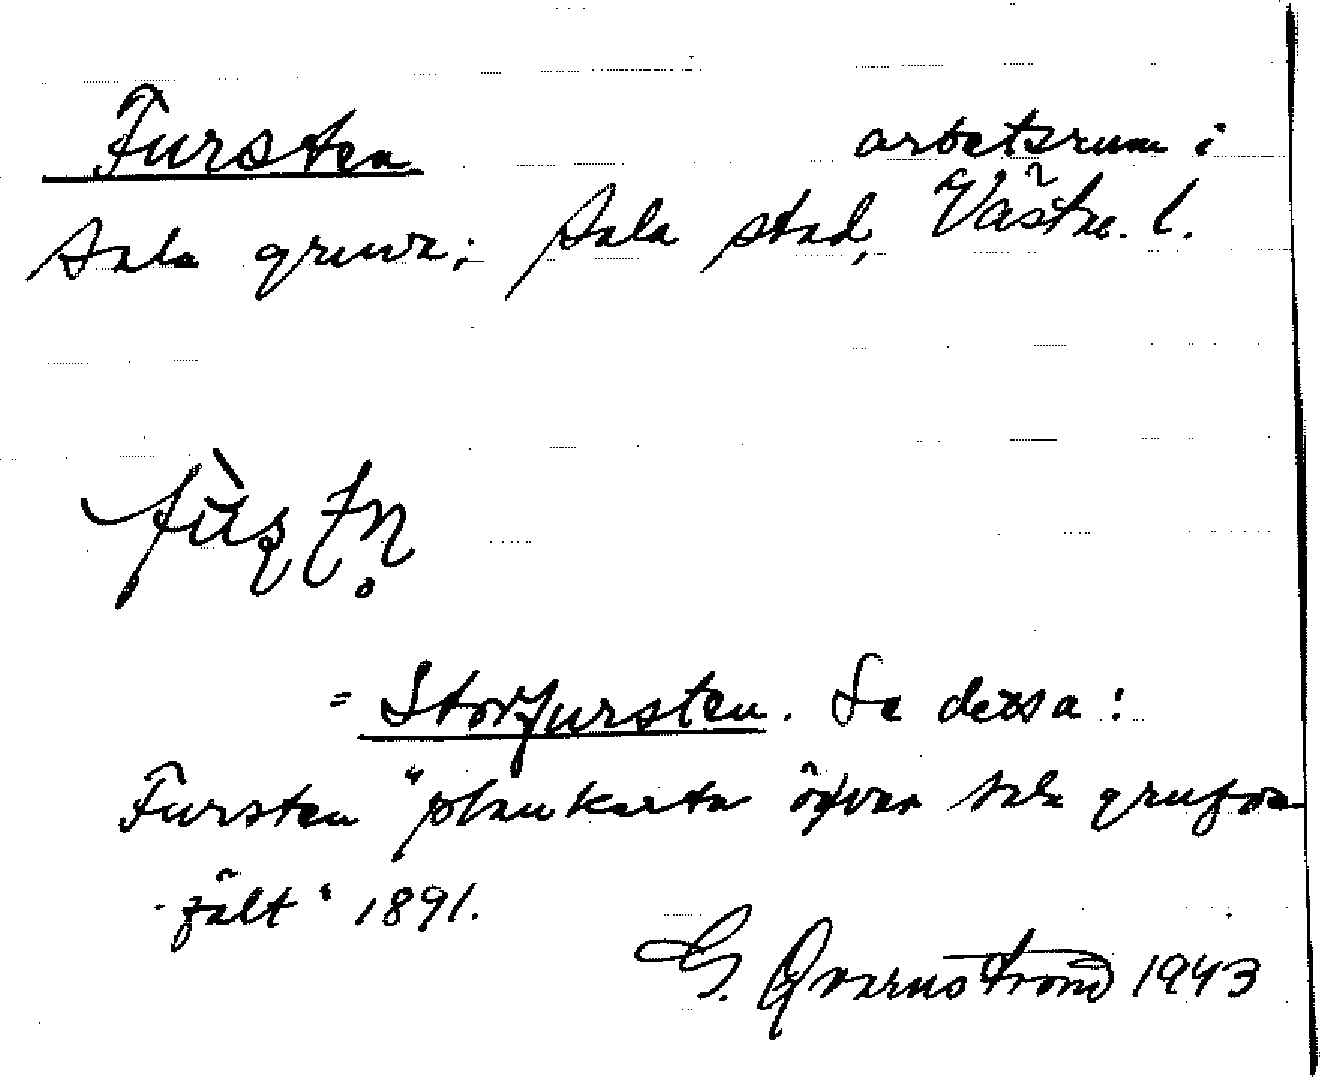 Fursten arbetsrum i
Sala gruva; Sala stad, Västm. l.
= Storfursten. Se dessa:
Fursten "plankarta öfver Sala grufva
-fält" 1891.
G. Qvarnström 1943